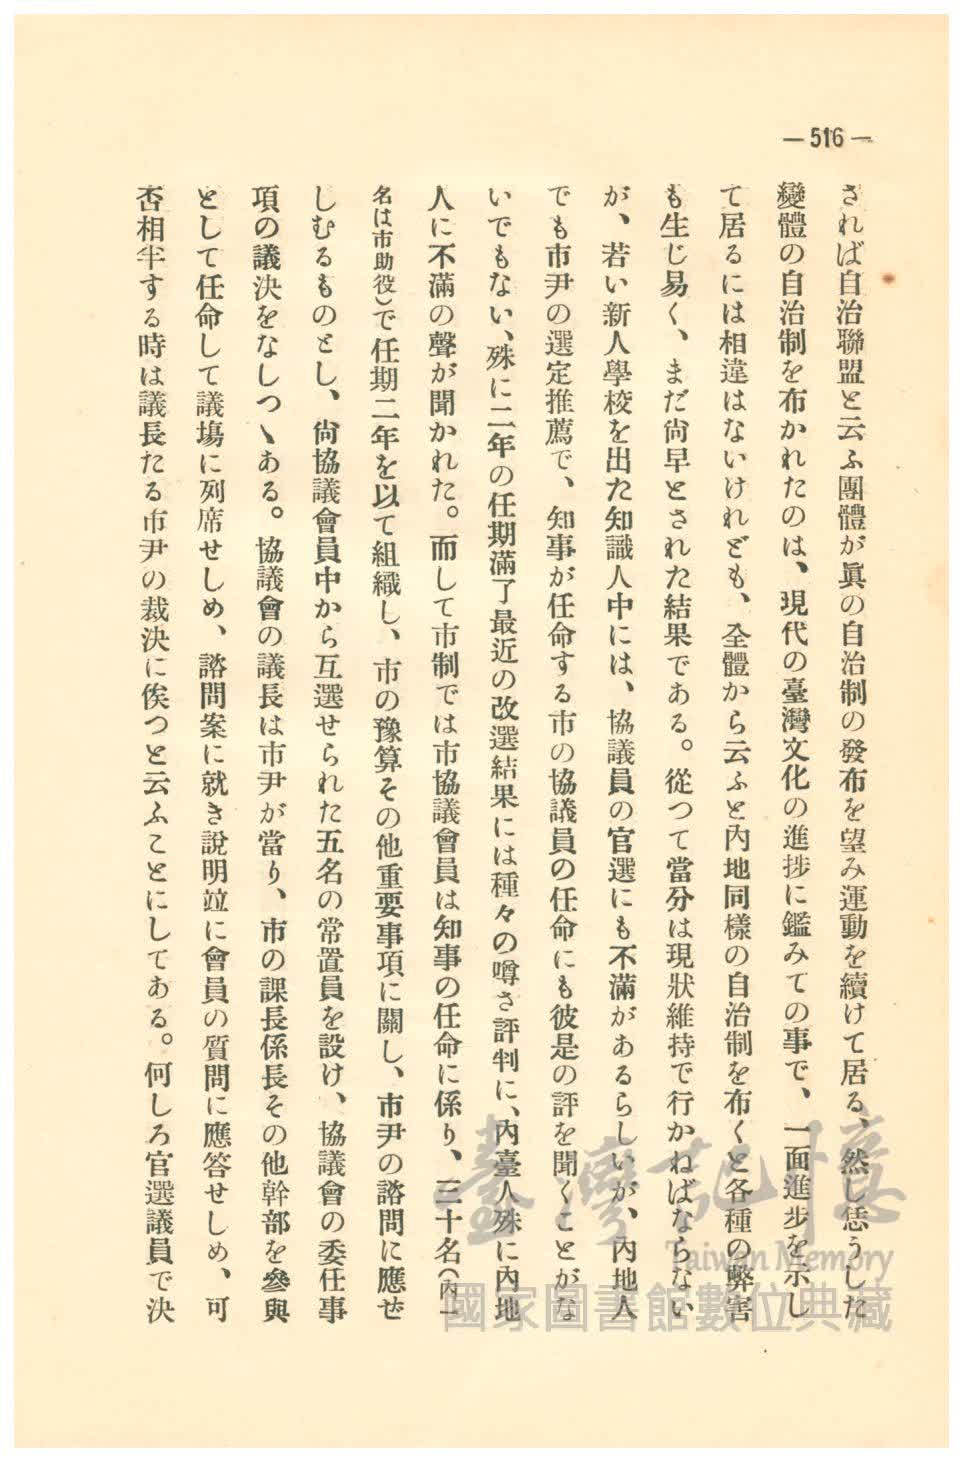 — 516 —
されば自治聯盟と云ふ團體が眞の自治制の發布を望み運動を續けて居る、然し恁うした
變體の自治制を布かれたのは、現代の臺灣文化の進捗に鑑みての事で、一面進步を示し
て居るには相違はないけれども、全體から云ふと內地同樣の自治制を布くと各種の弊害
も生じ易く、まだ尙早とされた結果である。從つて當分は現狀維持で行かねばならない
が、若い新人學校を出た知識人中には、協議員の官選にも不滿があるらしいが、內地人
でも市尹の選定推薦で、知事が任命する市の協議員の任命にも彼是の評を聞くことがな
いでもない、殊に二年の任期滿了最近の改選結果には種々の噂さ評判に、內臺人殊に內地
人に不滿の聲が聞かれた。而して市制では市協議會員は知事の任命に係り、三十名(內一
名は市助役)で任期二年を以て組織し、市の豫算その他重要事項に關し、市尹の諮問に應せ
しむるものとし、尙協議會員中から互選せられた五名の常置員を設け、協議會の委任事
項の議決をなしつゝある。協議會の議長は市尹が當り、市の課長係長その他幹部を參與
として任命して議場に列席せしめ、諮問案に就き說明竝に會員の質問に應答せしめ、可
否相半する時は議長たる市尹の裁決に俟つと云ふことにしてある。何しろ官選議員で決
臺灣記憶
Taiwan Memory
國家圖書館數位典藏